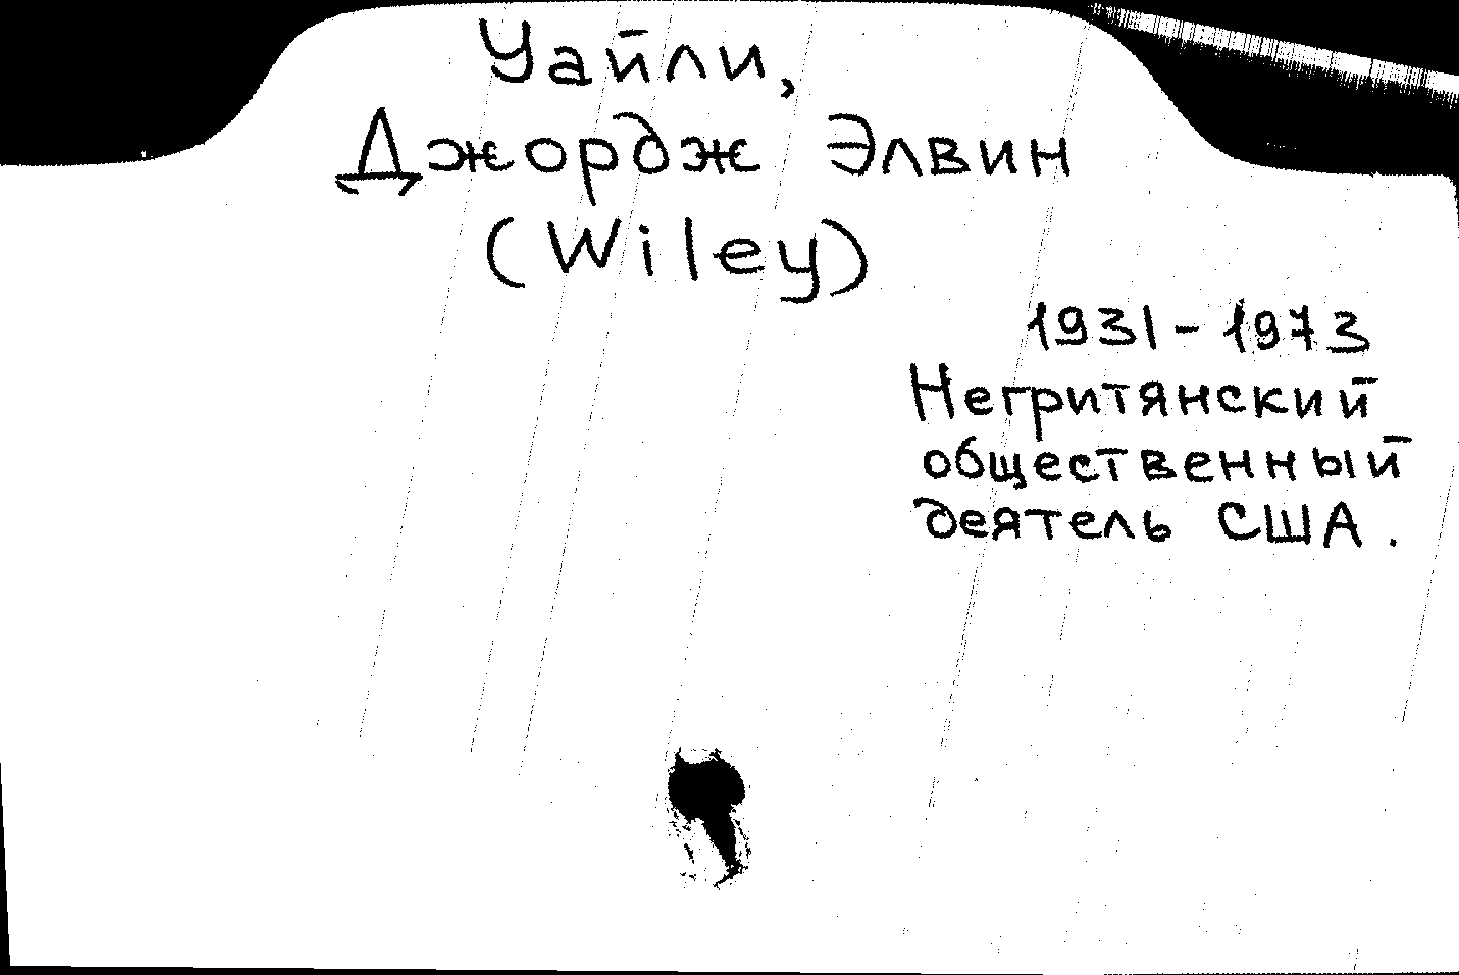 Уайли,
Джордж Элвин
(Wiley)
1931-1973
Негритянский
общественный
деятель США.